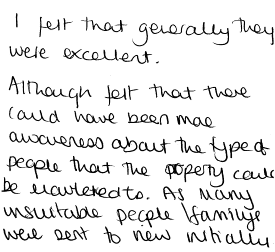 I felt that generally they
were excellent.
Although felt that there
could have been mae
awareness about the type of
people that the property could
be marketed to. As many
unsuitable people / families
were sent to new initially